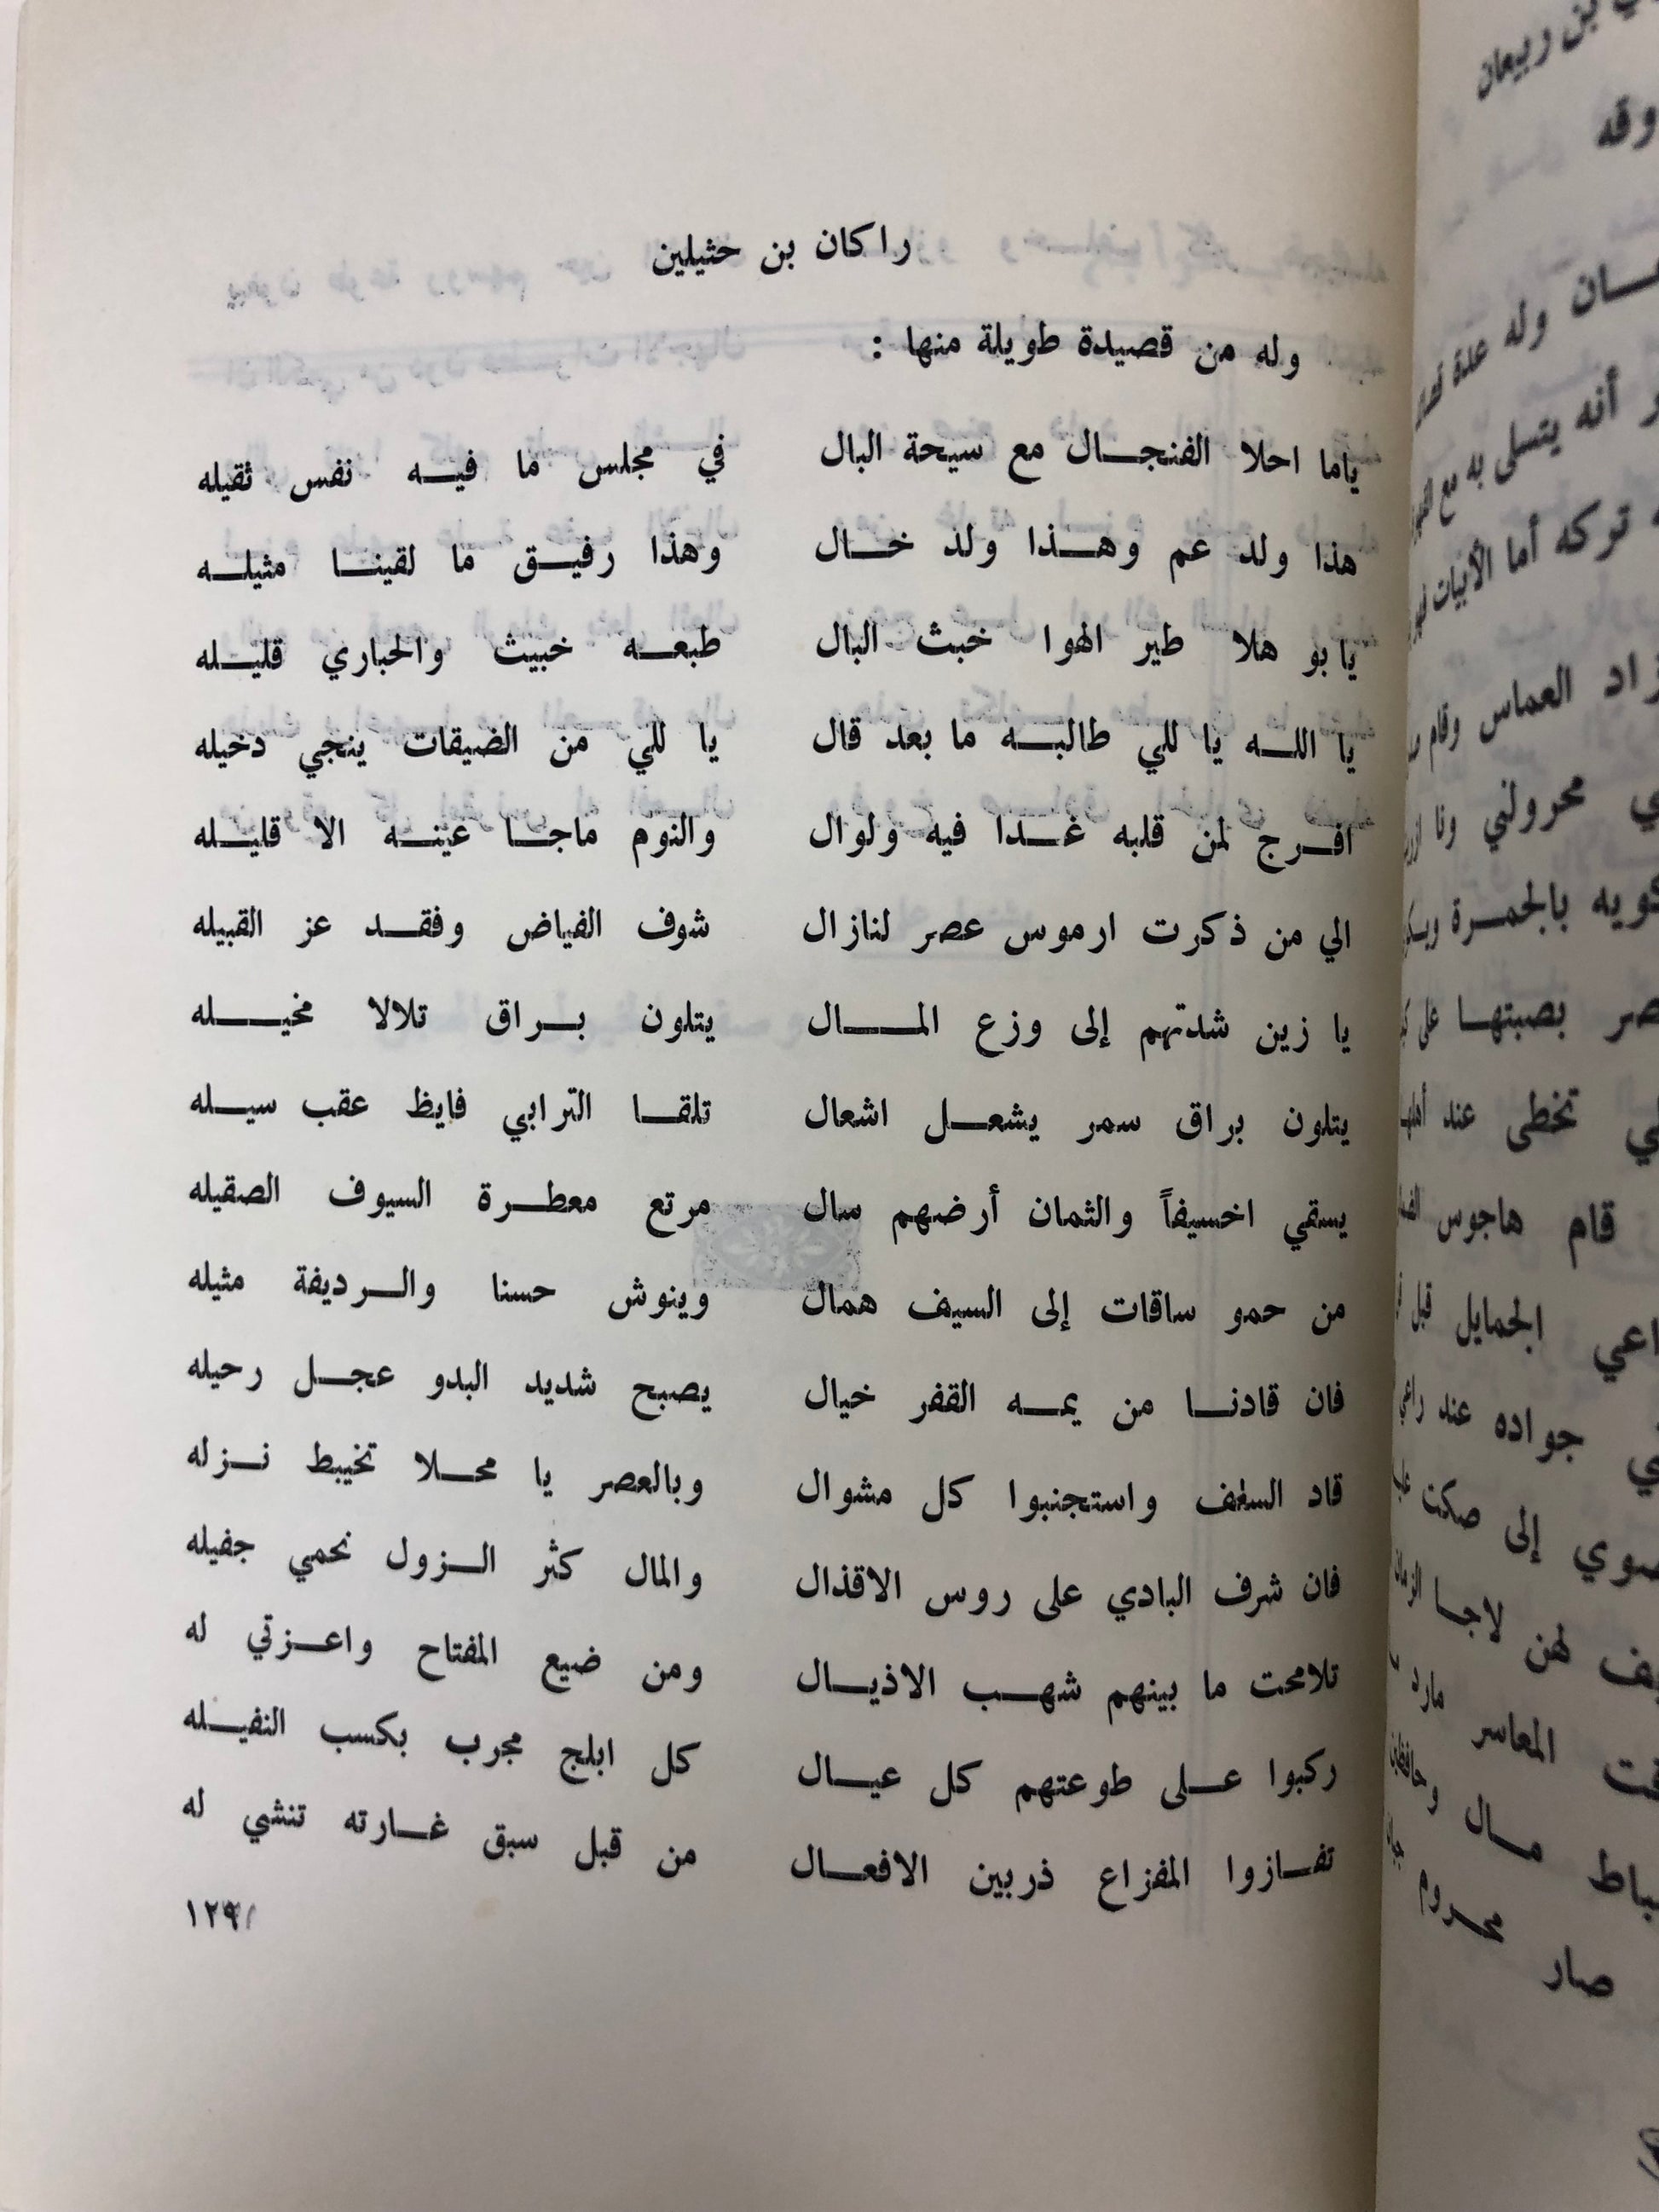 راكان بن حثيلين
وله من قصيدة طويلة منها :
ياما احلا الفنجال مع سيحة البال في مجلس ما فيه نفس ثقيله
هذا ولد عم وهذا ولد خال وهذا رفيق ما لقينا مثيله
يا بو هلا طير الهوا خبث البال طبعه خبيث والحباري قليله
يا الله يا للي طالبه ما بعد قال يا للي من الضيقات ينجي دخيله
افرج لمن قلبه غدا فيه ولوال والنوم ماجا عينه الا قليله
الي من ذكرت ارموس عصر لنازال شوف الفياض وفقد عز القبيله
يا زين شدتهم إلى وزع المال يتلون براق تلالا مخيله
يتلون براق سمر يشعل اشعال تلقا الترابي فايظ عقب سيله
يسقي اخسيفاً والثمان أرضهم سال مرتع معطرة السيوف الصقيله
من حمو ساقات إلى السيف همال وينوش حسنا والرديفة مثيله
فان قادنا من يمه القفر خيال يصبح شديد البدو عجل رحيله
قاد السلف واستجنبوا كل مشوال وبالعصر يا محلا تخيبط نزله
فان شرف البادي على روس الاقذال والمال كثر الزول نحمي جفيله
تلامحت ما بينهم شهب الاذيال ومن ضيع المفتاح واعزتي له
ركبوا على طوعتهم كل عيال كل ابلج مجرب بكسب النفيله
تفازوا المفزاع ذربين الافعال من قبل سبق غارته تنشي له
١٢٩
بن ربيعان
وقه
وله عدة
أنه يتسلى به مع
تركه أما الأبيات
زاد العماس وقام
محرولني ونا
كويه بالجمرة
بصبتها على
تخطى عند أهلها
قام هاجوس
الجمايل قبل
جواده عند راعي
إلى صكت
لهن لاجا
المعاسر مارد
مال
محروم
صار